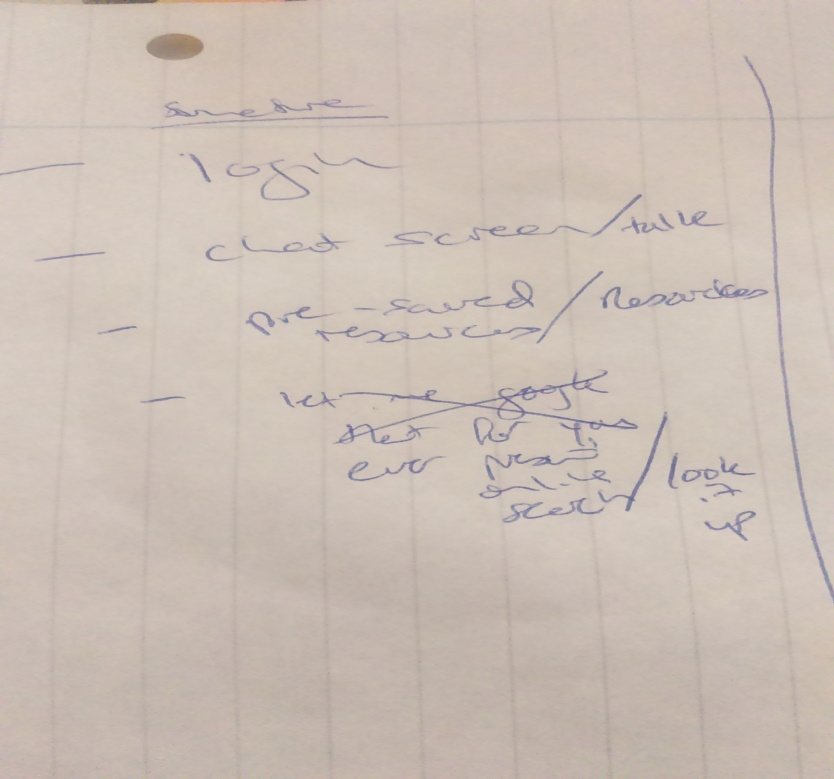 Structure
— login
— chat screen/talk
- pre-saved / Resources
resources
- let me google
that for you
ever present
online / look
search it
up